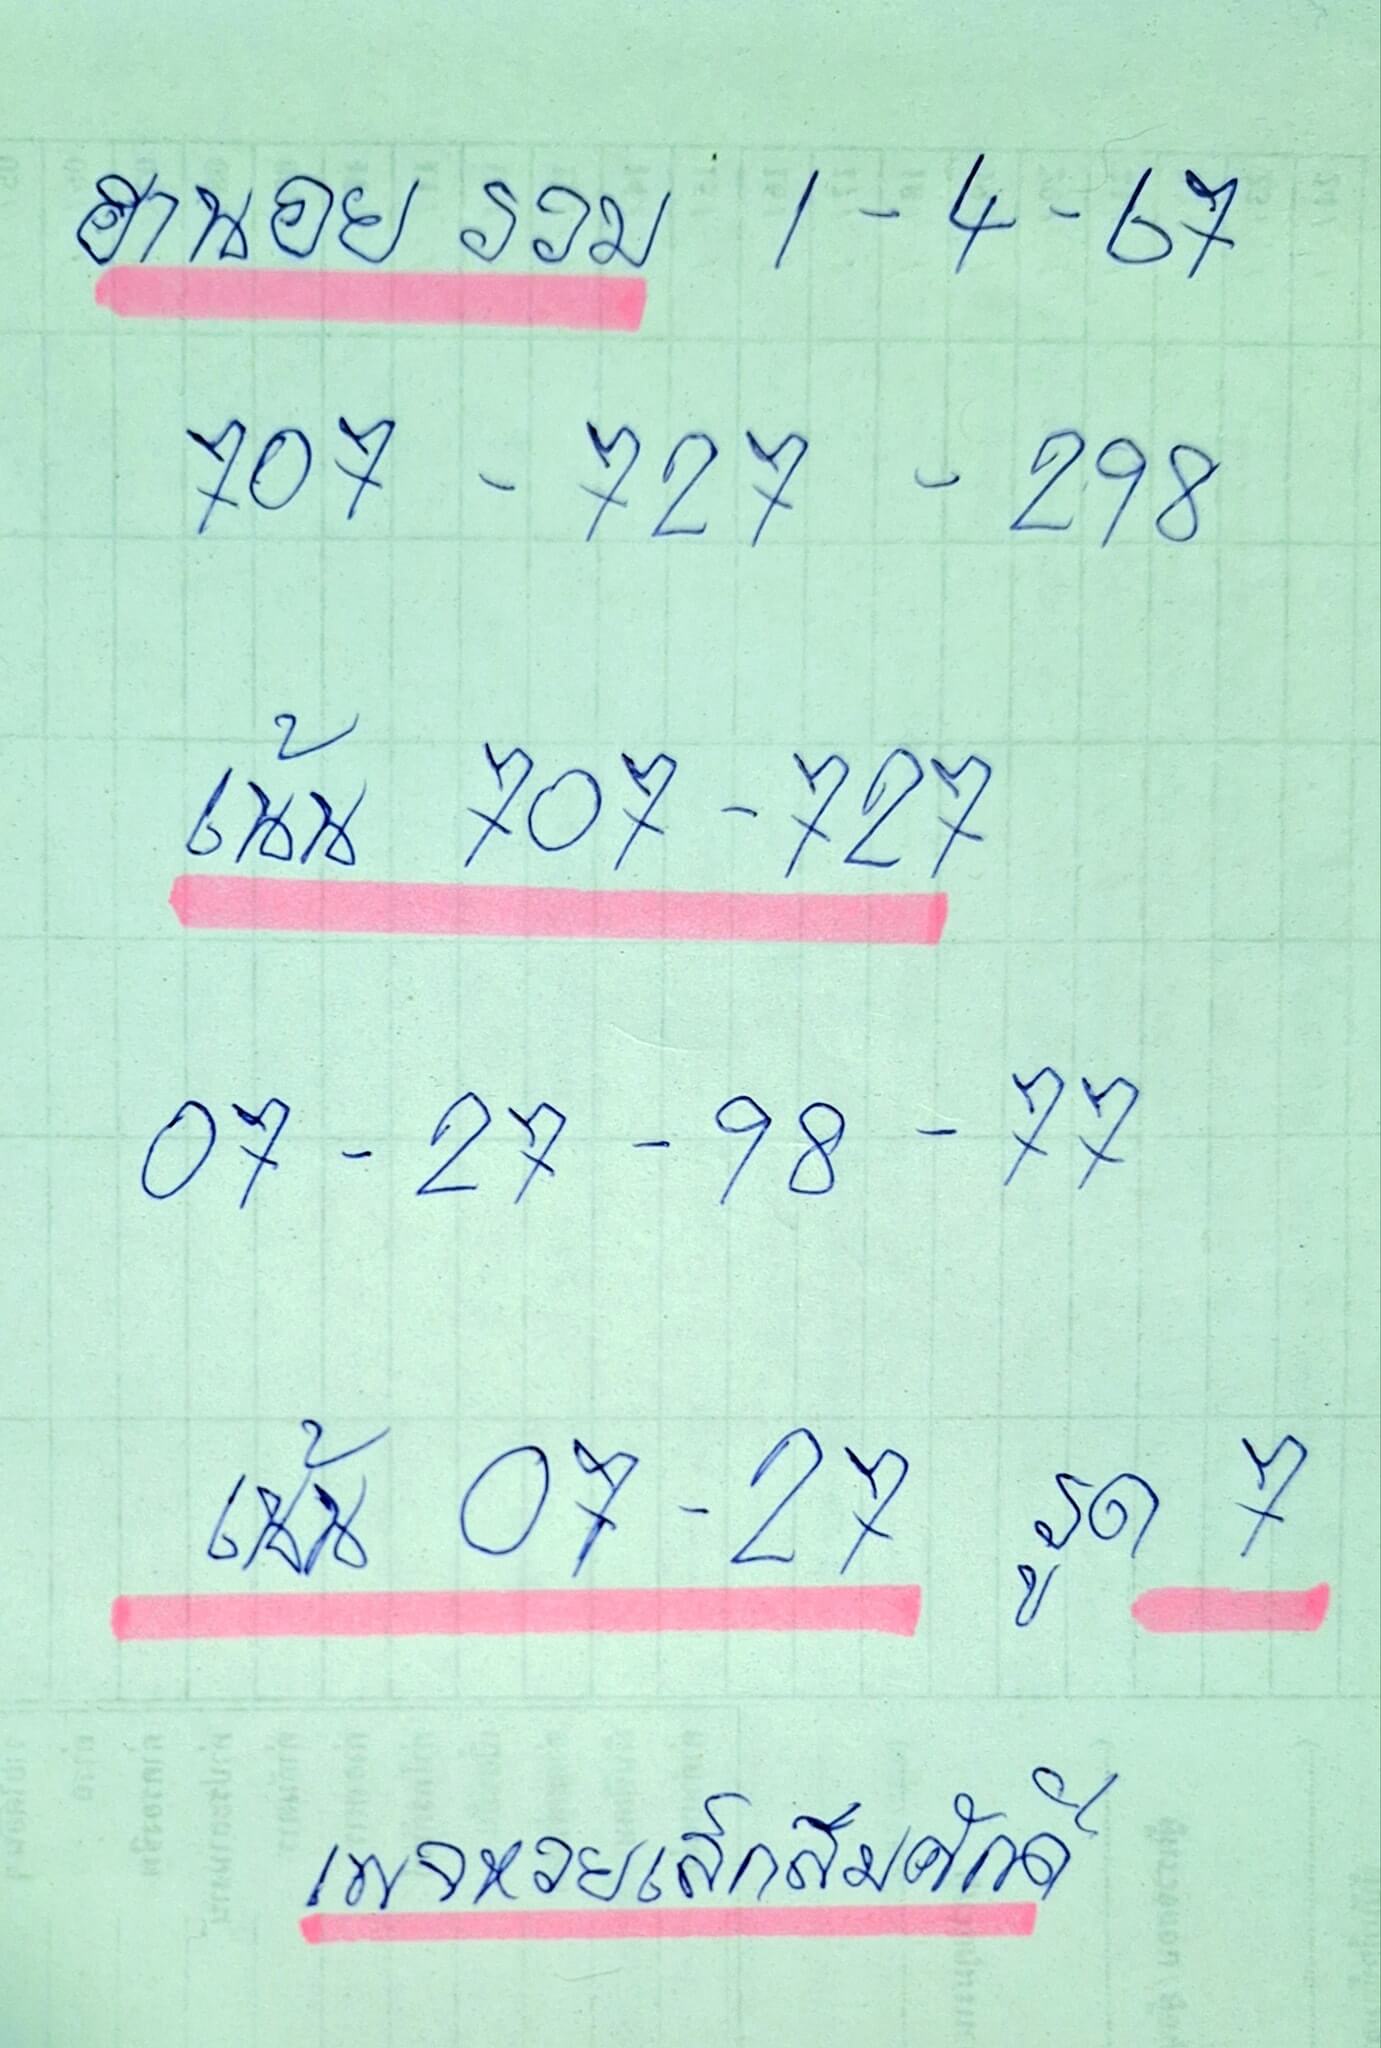 ฮานอย รวม 1-4-67
707 - 727 - 298
เน้น 707-727
07-27-98-77
เน้น 07-27 รูด 7
เพจหวยเล็กสืมศักดิ์